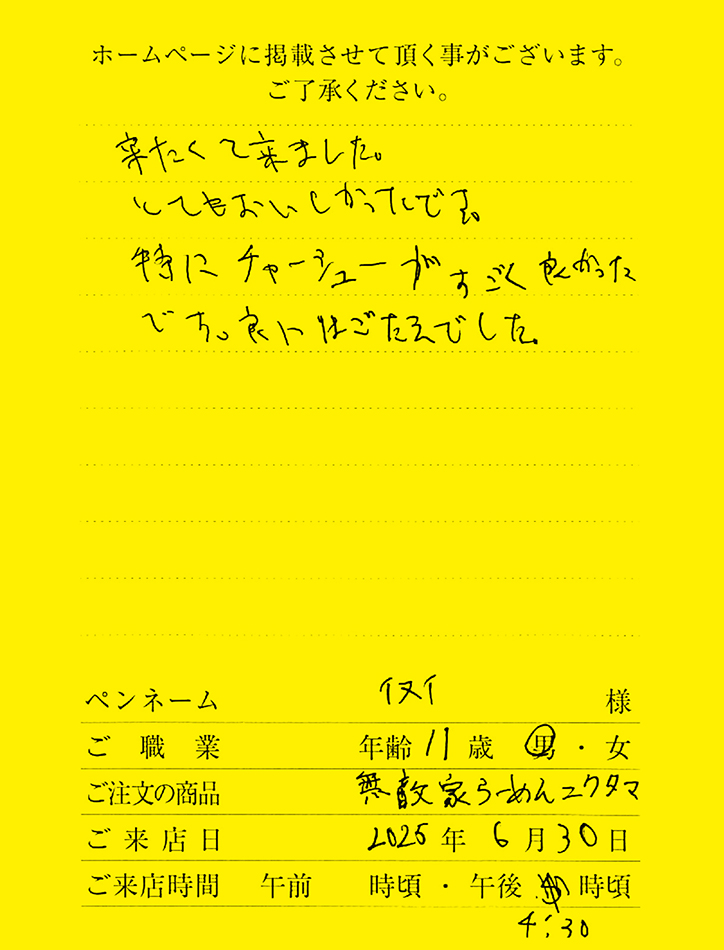 ホームページに掲載させて頂く事がございます。
ご了承ください。
来たくて来ました。
とてもおいしかったです。
特にチャーシューがすごく良かった
です。良いはごたえでした。
ペンネーム イヌイ 様
ご職業 年齢 11 歳 男・女
ご注文の商品 無敵家らーめんニクタマ
ご来店日 2025 年 6 月 30 日
ご来店時間 午前 時頃・午後 時頃
4:30